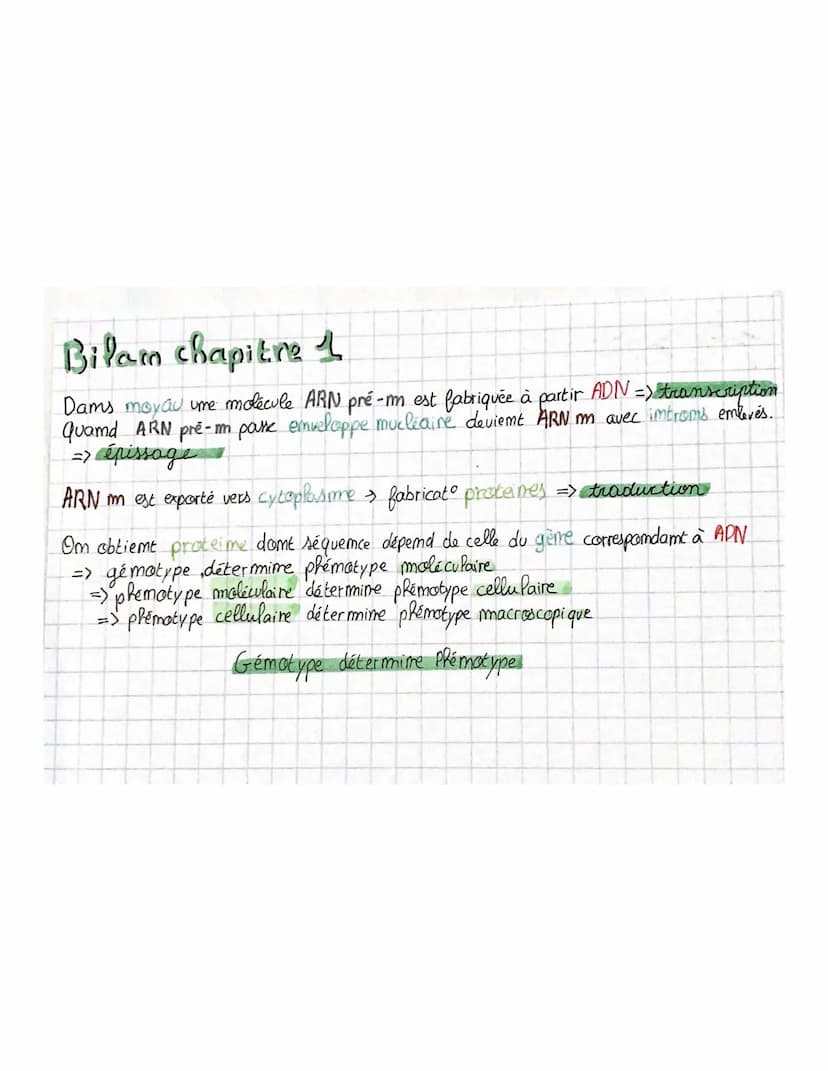 Bilan chapitre 1
Dans noyau une molécule ARN pré-m est fabriquée à partir ADN => transcription
Quand ARN pré-m passe enveloppe nucléaire devient ARN m avec introns enlevés.
=> épissage
ARN m est exporté vers cytoplasme → fabricat° protéines => traduction
On obtient protéine dont séquence dépend de celle du gène correspondant à ADN
=> génotype détermine phénotype moléculaire
=> phénotype moléculaire détermine phénotype cellulaire
=> phénotype cellulaire détermine phénotype macroscopique
Génotype détermine Phénotype